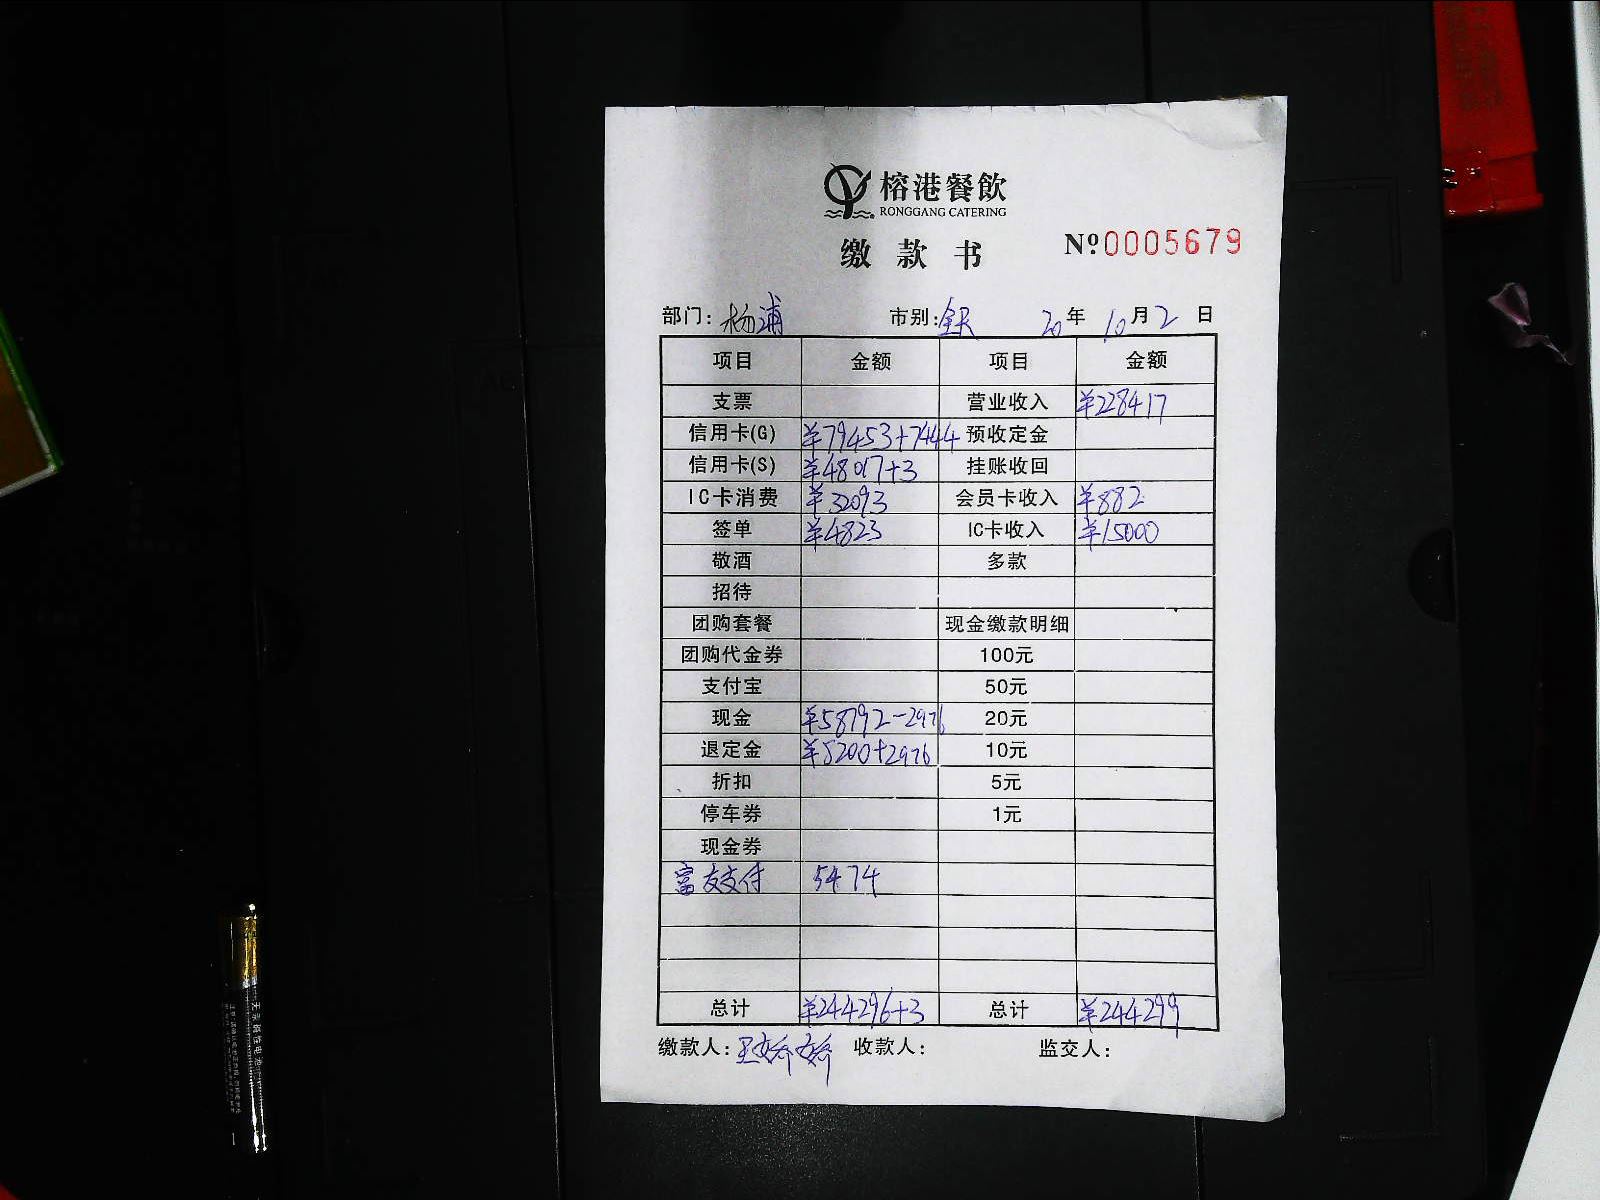 榕港餐飲
RONGGANG CATERING
缴款书 №0005679
部门：杨浦 市别：全天 20年 10月2日
项目 金额 项目 金额
支票 营业收入 ¥228417
信用卡(G) ¥79453+7444 预收定金
信用卡(S) ¥48017+3 挂账收回
IC卡消费 ¥32093 会员卡收入 ¥882
签单 ¥4823 IC卡收入 ¥15000
敬酒 多款
招待
团购套餐 现金缴款明细
团购代金券 100元
支付宝 50元
现金 ¥58792-2976 20元
退定金 ¥8200+2976 10元
折扣 5元
停车券 1元
现金券
富友支付 5474
总计 ¥244296+3 总计 ¥244299
缴款人： 收款人： 监交人：